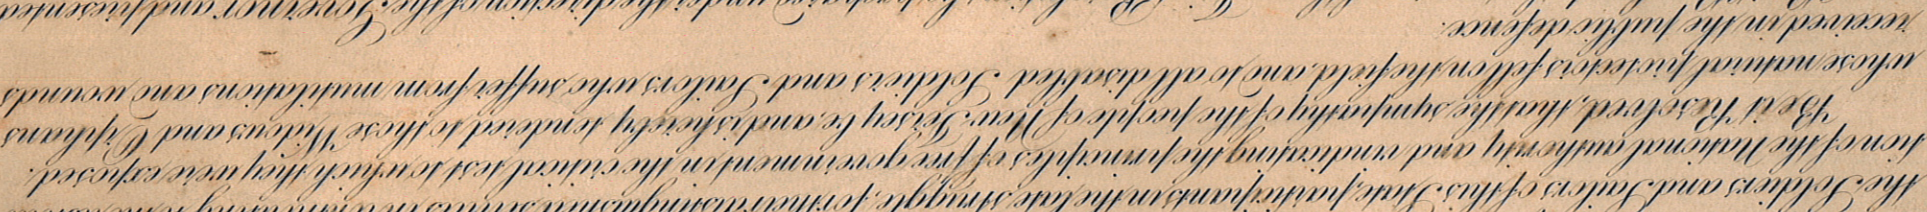 the Soldiers and Sailors of this State, participants in the late struggle, for their distinguished services in
tion of the National authority and vindicating the principles of free government in the critical test to which they were exposed.
Be it Resolved, that the sympathy of the people of New Jersey be, and is hereby tendered to those Widows and Orphans
whose natural protectors fell on the field, and to all disabled Soldiers and Sailors who suffer from mutilations and wounds
received in the public defence.
under the direction of the Governor and presented